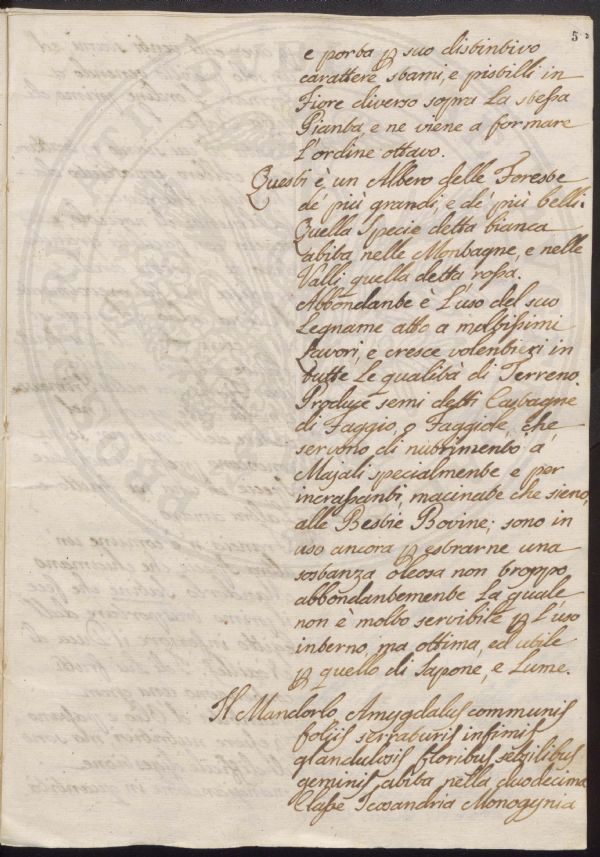 5
e porta p suo distintivo
carattere stami, e pistilli in
Fiore diverso sopra La stessa
Pianta, e ne viene a formare
L'ordine ottavo.
Questi è un Albero delle Foreste
de' più grandi, e de' più belli.
Quella Specie detta bianca
abita nelle Montagne, e nelle
Valli quella detta rossa.
Abbondante è L'uso del suo
Legname atto a moltissimi
Lavori, e cresce volentieri in
tutte Le qualità di Terreno.
Produce semi detti Castagne
di Faggio, o Faggiole, che
servono di nutrimento a'
Majali specialmente e per
incrassanti, macinate che sieno,
alle Bestie Bovine; sono in
uso ancora p estrarne una
sostanza oleosa non troppo
abbondantemente La quale
non è molto servibile p L'uso
interno, ma ottima, ed utile
p quello di Sapone, e Lume.
Il Mandorlo, Amygdalus communis
foliis serraturis infimis
glandulosis floribus sessilibus
geminis, abita nella duodecima
Classe Icosandria Monogynia